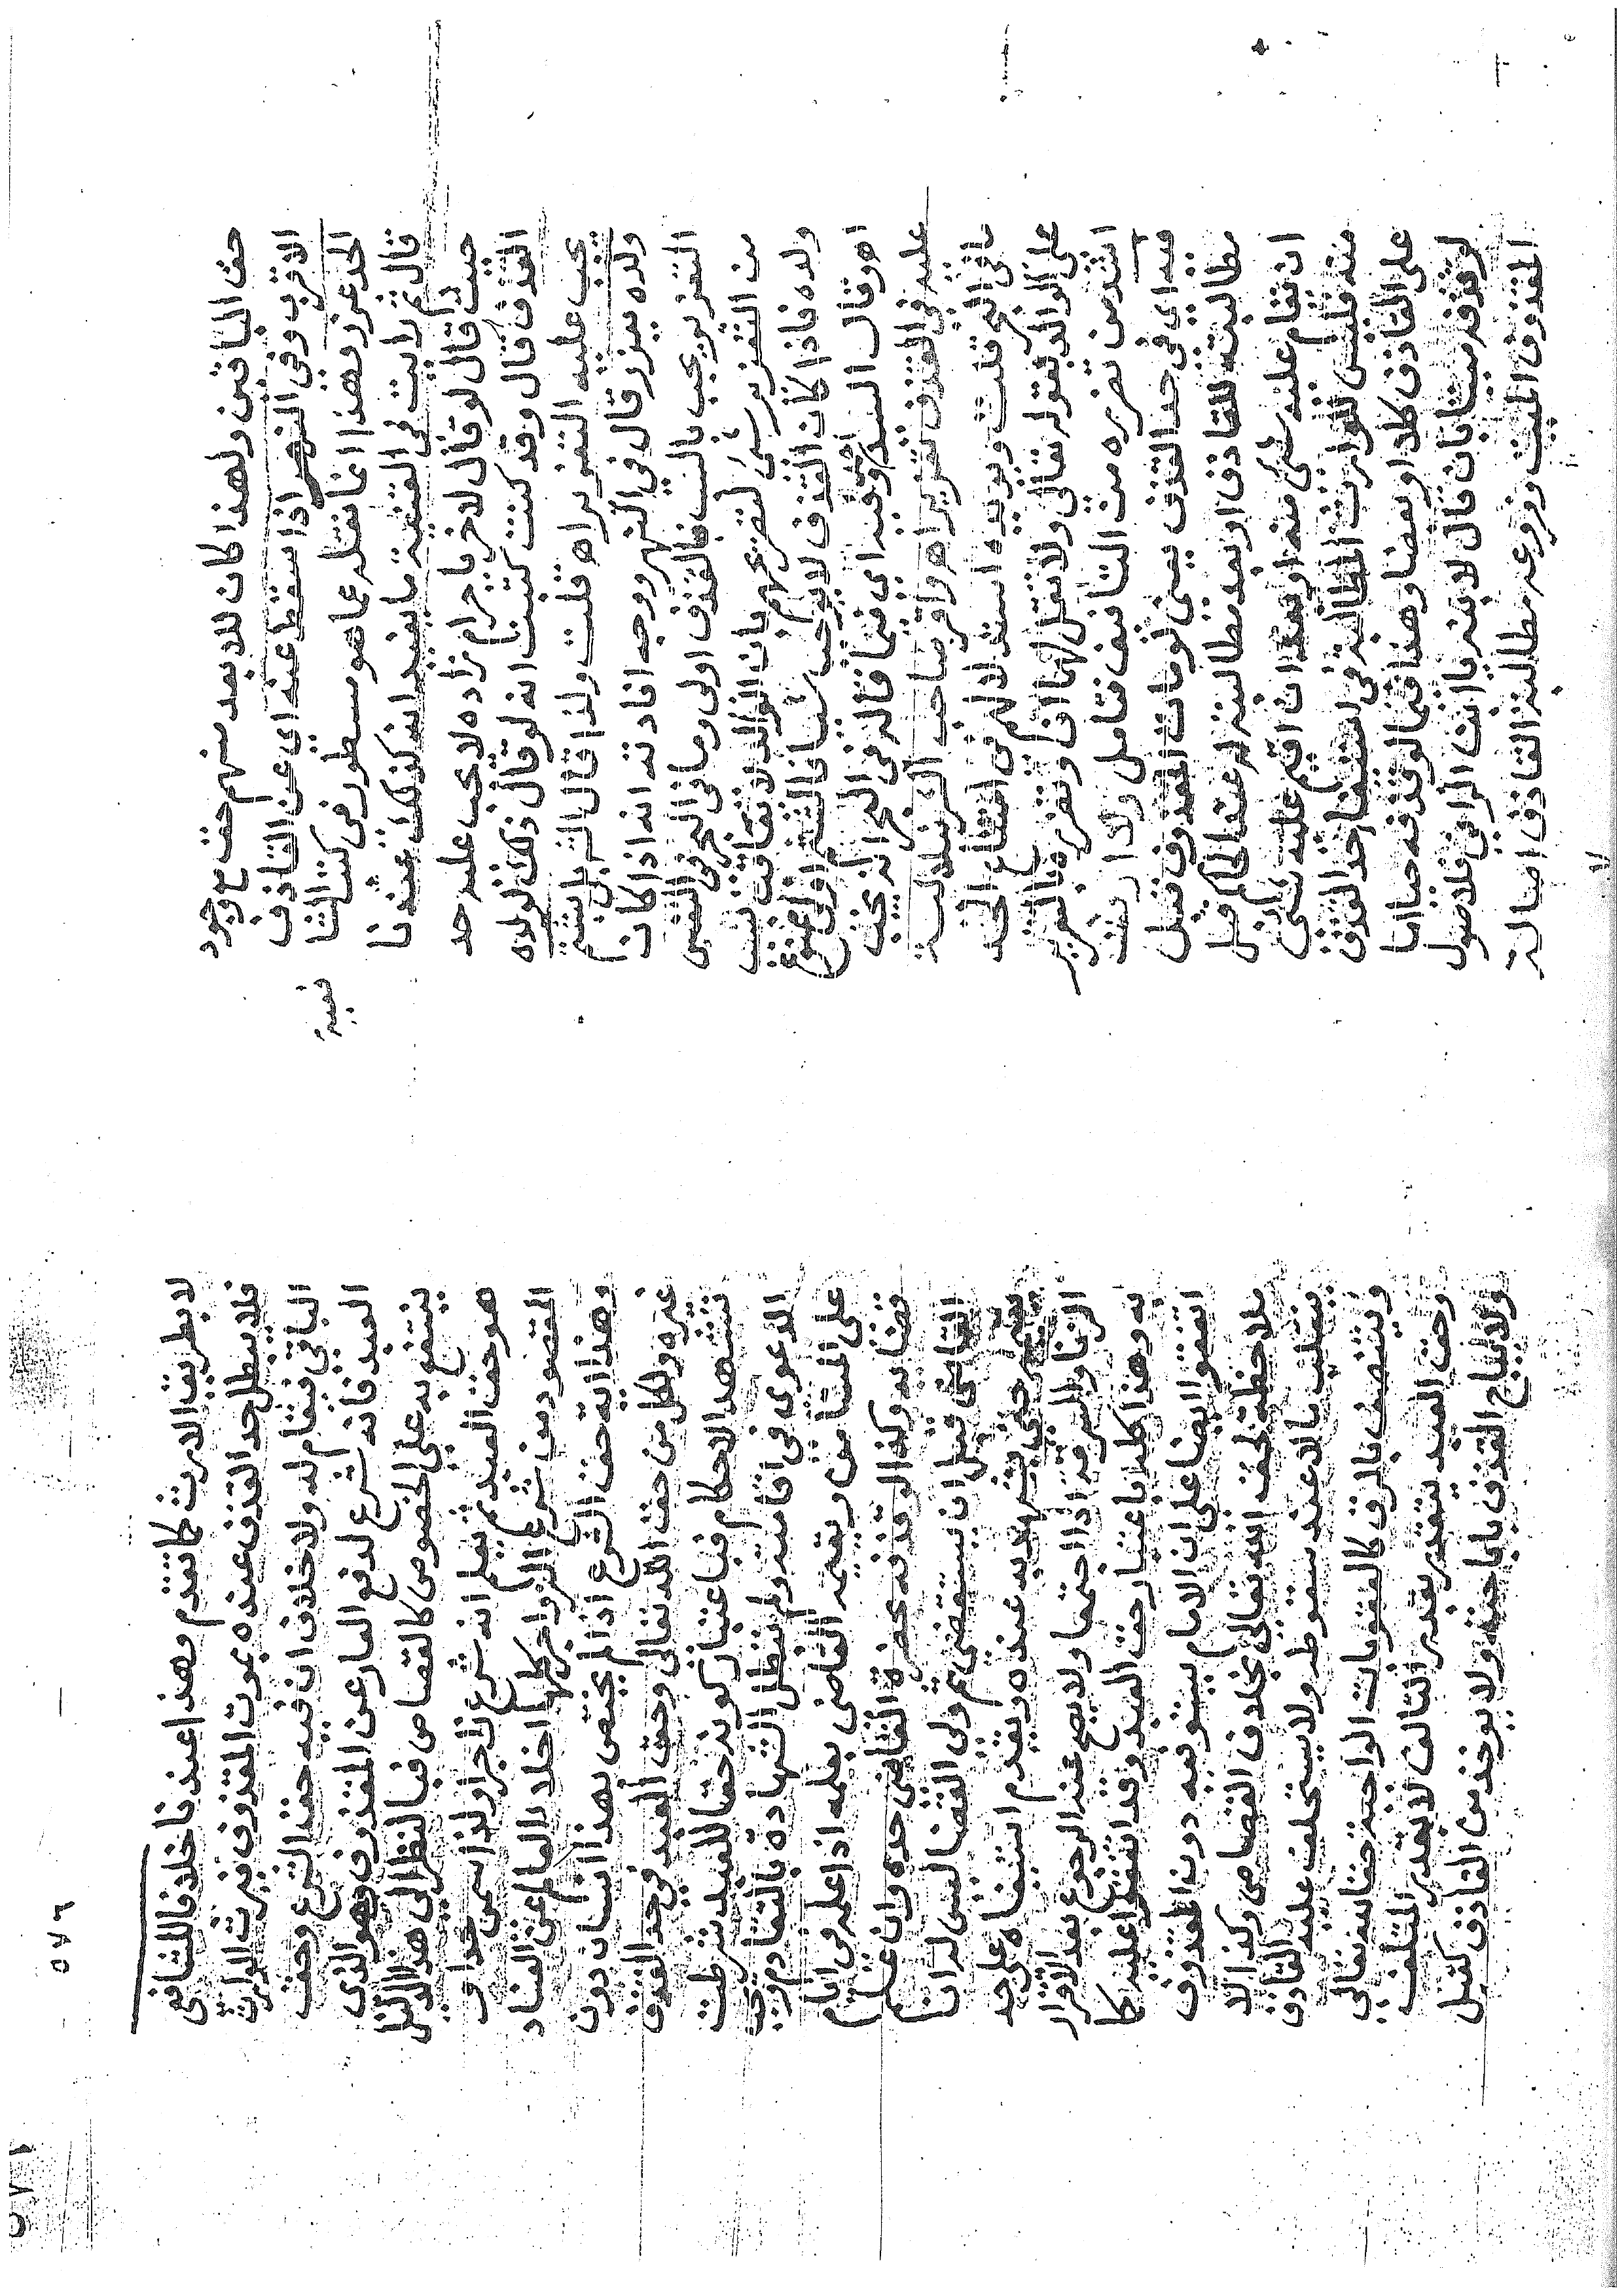 حق الباقين ولهذا كان للابعد منهم حق مع وجود
الاقرب وفي النهر اذا سقط عنه اي عن القاذف
الحد عزر وهذا انما نقله عما هو مسطور في كتب الشا
تنبيه
قال ثم رايت في القنية ما يفيد انه كذلك عندنا
حيث قال لو قال لاخر يا حرام زاده لا يجب عليه حد
القذف قال وقد كنت كتبت انه لو قال ذلك لولده
يجب عليه التعزير اه قلت ولذا قال الشر اذا شتم
ولده يعزر قال في النهر ووجه افادته انه اذا كان
التعزير يجب بالسب فالقذف اولى وما في البحر في النفس
من التعزير شي لتصريحهم بان الوالد لا يعاقب بسبب
ولده فاذا كان القذف لا يوجب شيا فالشتم اولى ممنوع
اه وقال السيد وفيه اي فيما قاله في البحر انه يجب
عليه في القذف تعزير اه واقره صاحب الشرنبلالية
باقي البحر قلت ويؤيده استدلالهم في امتناع الحد
على الوالد بقوله تعالى ولا تقل لهما اف وتقريره التعزير
اشد من تضرره من التافيف فتامل ولا ارث
فيه اي في حد القذف يعني لو مات المقذوف قبل
مطالبته للقاذف او بعد مطالبته له عند الحاكم قبل
ان تقام عليه شي منه او بعد ان اقيم عليه شي
منه فليس للوارث المطالبة في استيفا حد القذف
على القاذف كلا او بعضا وهذا فيما لو قذفه حيا اما
لو قذفه ميتا بان قال لابنه يا ابن الزاني فلاصول
المقذوف الميت وفروعه مطالبة القاذف اصالة
٥٧٦
لا بطريق الارث كما تقدم وهذا عندنا خلافا للشافعي
فلا يبطل حد القذف عنده بموت المقذوف فيرث الوارث
الباقي فيقام له ولا خلاف ان فيه حق الشرع وحق
العبد فانه شرع لدفع العار عن المقذوف وهو الذي
ينتفع به على الخصوص كالقصاص فبالنظر الى هذا الدليل
هو حق العبد ثم يعلم انه شرع زاجرا ولذا سمي حدا و
المقصود من شرع الزواجر كلها اخلاء العالم عن الفساد
وهذا اية حق الشرع اذ لم يختص بهذا انسان دون
غيره ولكل من حق الله تعالى وحق العبد في حد القذف
تشهد الاحكام فباعتبار كونه حقا للعبد شرطت
الدعوى في اقامته ولم تبطل الشهادة بالتقادم ويجب
على المستامن ويقيمه القاضي بعلمه اذا علم في ايام
قضايه وكذا لو قذفه بحضرة القاضي حده وان علم
القاضي قبل ان يستقضى ثم ولي القضا ليس له ان
يقيم حتى يشهد به عنده ويقدم استيفاه على حد
الزنا والسرقة اذا اجتمعا ولا يصح عند الرجوع بعد الاقرار
به وهذا كله باعتبار حق العبد وقد اتفقوا عليه كما
اتفقوا ايضا على ان الامام يستوفيه دون المقذوف
ملاحظة لحق الله تعالى بخلاف القصاص وكذا لا
ينقلب مالا عند سقوطه ولا يستحلف عليه القاذف
ويتنصف بالرق كالعقوبات الواجبة حقا لله تعالى
وحق العبد يتقدر بقدر التالف لا بقدر المتلف
ولا يباح القذف باباحته ولا يؤخذ من القاذف كفيل